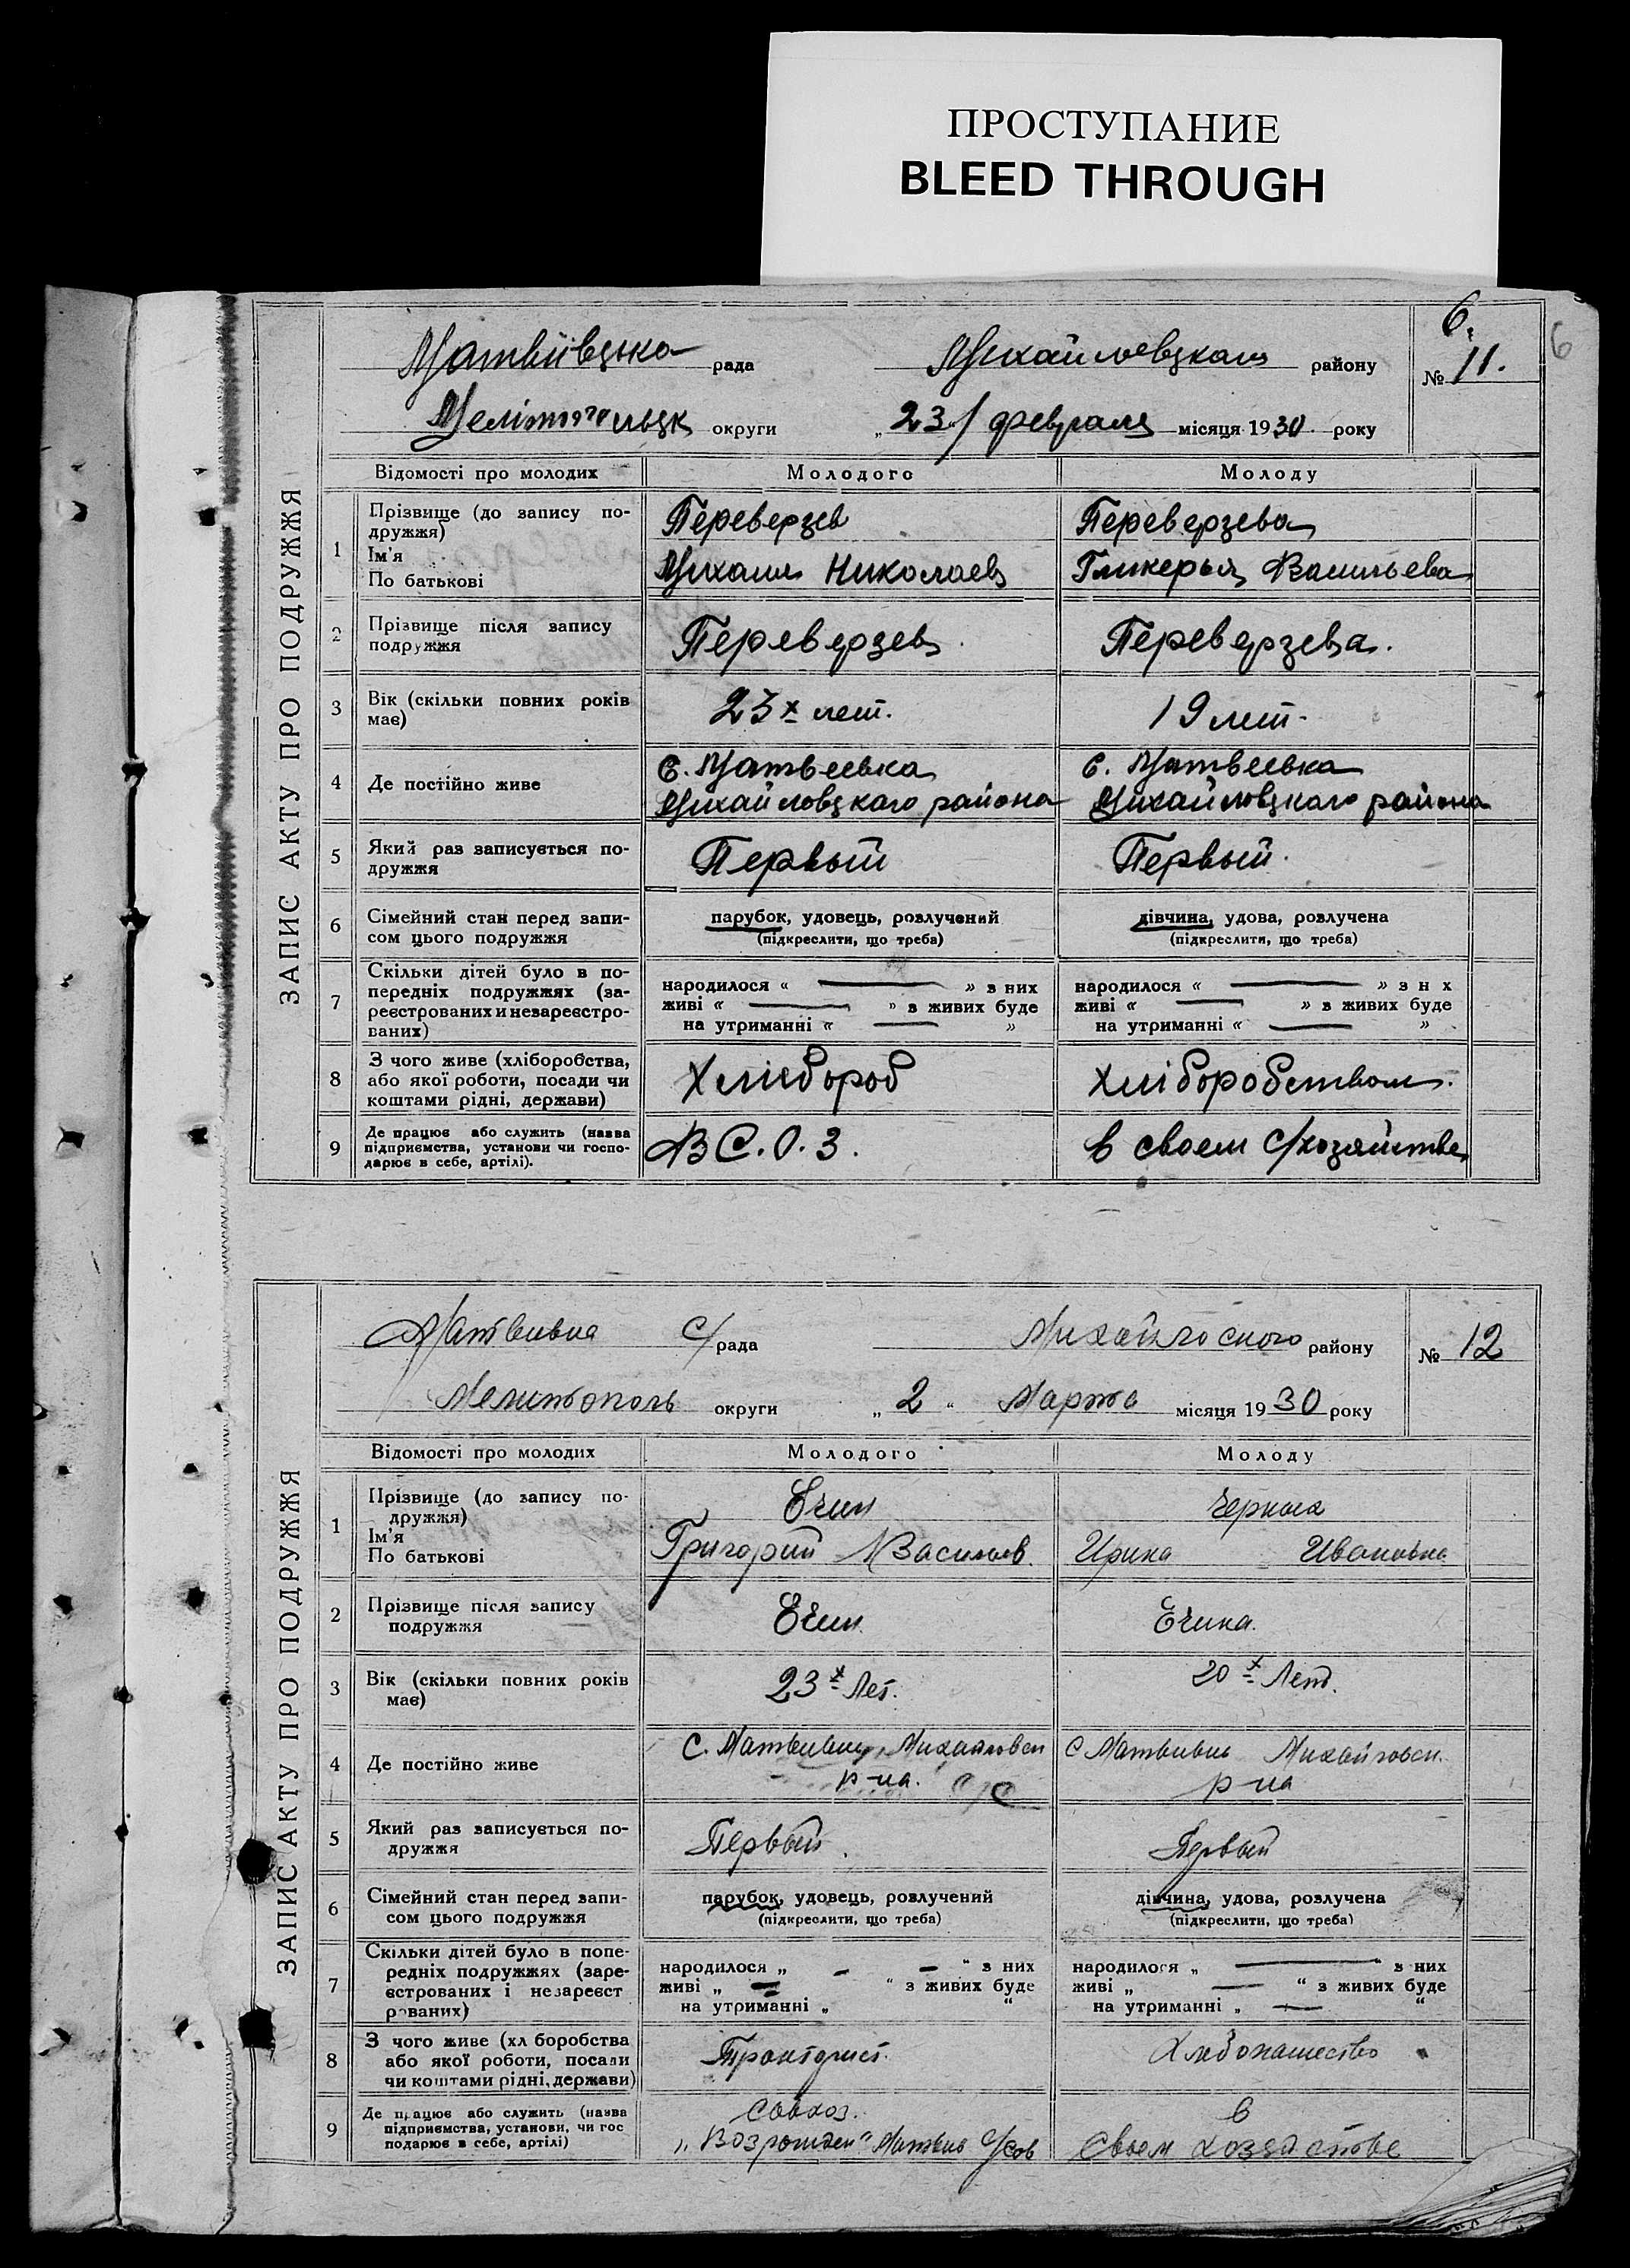 ПРОСТУПАНИЕ
BLEED THROUGH
6.
6
Матвіївцько рада Михайловцкаго району № 11.
Мелітопільцк округи „ 23 “ / февраля місяця 1930 року
ЗАПИС АКТУ ПРО ПОДРУЖЖЯ
Відомості про молодих Молодого Молоду
1 Прізвище (до запису по-
дружжя) Переверзев Переверзева
Ім'я
По батькові Михаил Николаев Гликерья Васильева
2 Прізвище після запису
подружжя Переверзев. Переверзева.
3 Вік (скільки повних років
має) 23х лет. 19 лет.
4 Де постійно живе С. Матвеевка С. Матвеевка
Михайловцкаго района Михайловцкаго района
5 Який раз записується по-
дружжя Первый Первый.
6 Сімейний стан перед запи-
сом цього подружжя
парубок, удовець, розлучений дівчина, удова, розлучена
(підкреслити, що треба) (підкреслити, що треба)
7 Скільки дітей було в по-
передніх подружжях (за-
реєстрованих и незареєстро-
ваних)
народилося « — » з них народилося « — » з н х
живі « — » в живих буде живі « — » з живих буде
на утриманні « — » на утриманні « — »
8 З чого живе (хліборобства,
або якої роботи, посади чи
коштами рідні, держави) Хлибороб Хліборобством.
9 Де працює або служить (назва
підприємства, установи чи госпо-
дарює в себе, артілі). В С.О.З. в своем с/хозяйстве
Матвивка с/рада Михайлоского району № 12
Мелитополь округи „ 2 “ Марта місяця 1930 року
ЗАПИС АКТУ ПРО ПОДРУЖЖЯ
Відомості про молодих Молодого Молоду
1 Прізвище (до запису по-
дружжя) Ечин Черная
Ім'я
По батькові Григорий Васильев. Ирина Ивановна
2 Прізвище після запису
подружжя Ечин Ечина.
3 Вік (скільки повних років
має) 23х Лет. 20х Лет.
4 Де постійно живе С. Матвивка, Михайловск С Матвивка Михайловск.
р-на. с/с р-на
5 Який раз записується по-
дружжя Первый. Первый
6 Сімейний стан перед запи-
сом цього подружжя
парубок, удовець, розлучений дівчина, удова, розлучена
(підкреслити, що треба) (підкреслити, що треба)
7 Скільки дітей було в попе-
редніх подружжях (заре-
єстрованих і незареєст
рованих)
народилося „ - — “ з них народилося „ — “ з них
живі „ — “ з живих буде живі „ — “ з живих буде
на утриманні „ “ на утриманні „ — “
8 З чого живе (хл боробства
або якої роботи, посади
чи коштами рідні, держави) Тракторист. Хлебопашество
9 Де працює або служить (назва
підприємства, установи, чи гос
подарює в себе, артілі)
совхоз. в
„Возрожден“ Своем хозяйстве